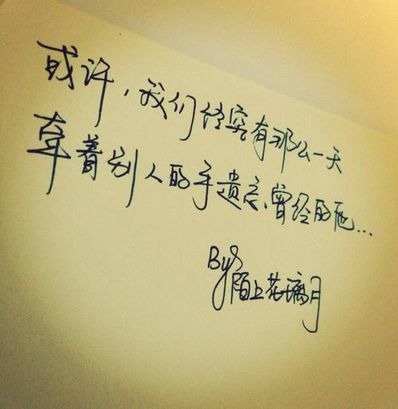 或许，我们终究有那么一天
牵着别人的手遗忘曾经的他...
By
陌上花璃月